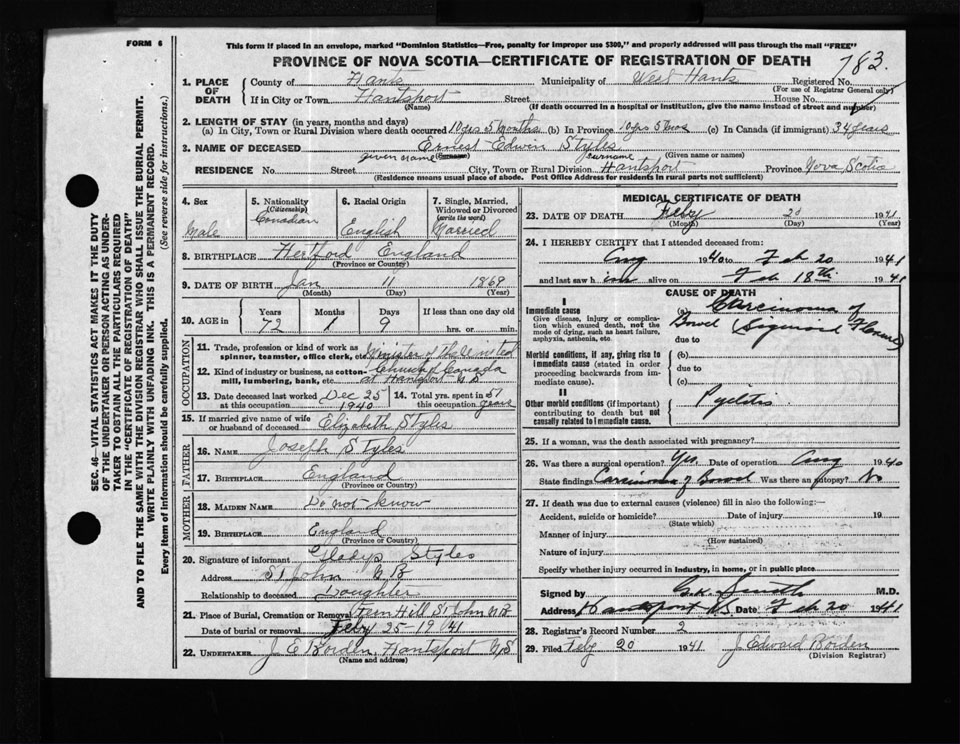 FORM 6
This form if placed in an envelope, marked "Dominion Statistics—Free, penalty for improper use $300," and properly addressed will pass through the mail "FREE"
PROVINCE OF NOVA SCOTIA—CERTIFICATE OF REGISTRATION OF DEATH
783.
1. PLACE OF DEATH
County of Hants Municipality of West Hants Registered No.
(For use of Registrar General only)
If in City or Town Hantsport Street House No.
(Name) (If death occurred in a hospital or institution, give the name instead of street and number)
2. LENGTH OF STAY (in years, months and days)
(a) In City, Town or Rural Division where death occurred 10 yrs 5 months (b) In Province 10 yrs 5 mos (c) In Canada (if immigrant) 34 years
3. NAME OF DECEASED Ernest Edwin Styles
given name (Surname) surname (Given name or names)
RESIDENCE No. Street City, Town or Rural Division Hantsport Province Nova Scotia
(Residence means usual place of abode. Post Office Address for residents in rural parts not sufficient)
4. Sex
Male
5. Nationality
(Citizenship)
Canadian
6. Racial Origin
English
7. Single, Married, Widowed or Divorced
(write the word)
Married
8. BIRTHPLACE Hertford England
(Province or Country)
9. DATE OF BIRTH Jan 11 1869
(Month) (Day) (Year)
10. AGE in Years Months Days If less than one day old
72 1 9 hrs. or min.
OCCUPATION
11. Trade, profession or kind of work as
spinner, teamster, office clerk, etc. Minister of the United
12. Kind of industry or business, as cotton- Church of Canada
mill, lumbering, bank, etc. at Hantsport N S
13. Date deceased last worked at this occupation Dec 25 1940
14. Total yrs. spent in this occupation 51 years
15. If married give name of wife
or husband of deceased Elizabeth Styles
FATHER
16. NAME Joseph Styles
17. BIRTHPLACE England
(Province or Country)
MOTHER
18. MAIDEN NAME Do not know
19. BIRTHPLACE England
(Province or Country)
20. Signature of informant Gladys Styles
Address St John N B
Relationship to deceased Daughter
21. Place of Burial, Cremation or Removal Fern Hill St John N B
Date of burial or removal Feby 25-19 41
22. UNDERTAKER J E Borden, Hantsport N S
(Name and address)
MEDICAL CERTIFICATE OF DEATH
23. DATE OF DEATH Feby 20 1941
(Month) (Day) (Year)
24. I HEREBY CERTIFY that I attended deceased from:
Aug 1940 to Feb 20 1941
and last saw him alive on Feb 18th 1941
CAUSE OF DEATH
I
Immediate cause
Give disease, injury or complication which caused death, not the mode of dying, such as heart failure, asphyxia, asthenia, etc.
(a) Carcinoma of
Bowel (Sigmoid Flexure)
due to
Morbid conditions, if any, giving rise to immediate cause (stated in order proceeding backwards from immediate cause).
(b)
due to
(c)
II
Other morbid conditions (if important) contributing to death but not causally related to immediate cause.
Pyelitis
25. If a woman, was the death associated with pregnancy?
26. Was there a surgical operation? Yes. Date of operation Aug 1940
State findings Carcinoma of Bowel Was there an autopsy? No
27. If death was due to external causes (violence) fill in also the following:—
Accident, suicide or homicide? Date of injury 19
(State which)
Manner of injury
(How sustained)
Nature of injury
Specify whether injury occurred in industry, in home, or in public place
Signed by G.K. Smith M.D.
Address Hantsport N.S. Date Feb 20 1941
28. Registrar's Record Number 2
29. Filed Feby 20 1941 J Edward Borden
(Division Registrar)
SEC. 46—VITAL STATISTICS ACT MAKES IT THE DUTY
OF THE UNDERTAKER OR PERSON ACTING AS UNDER-
TAKER TO OBTAIN ALL THE PARTICULARS REQUIRED
IN THE "CERTIFICATE OF REGISTRATION OF DEATH"
AND TO FILE THE SAME WITH THE DIVISION REGISTRAR WHO SHALL ISSUE THE BURIAL PERMIT.
WRITE PLAINLY WITH UNFADING INK. THIS IS A PERMANENT RECORD.
Every item of information should be carefully supplied. (See reverse side for instructions.)